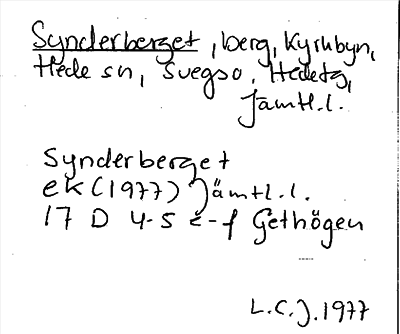 Synderberget, berg, Kyrkbyn,
Hede sn, Svegso, Hedetg,
Jämtl.l.
Synderberget
ek(1977) Jämtl.l.
17 D 4-5 e-f Gethögen
L.C.J.1977